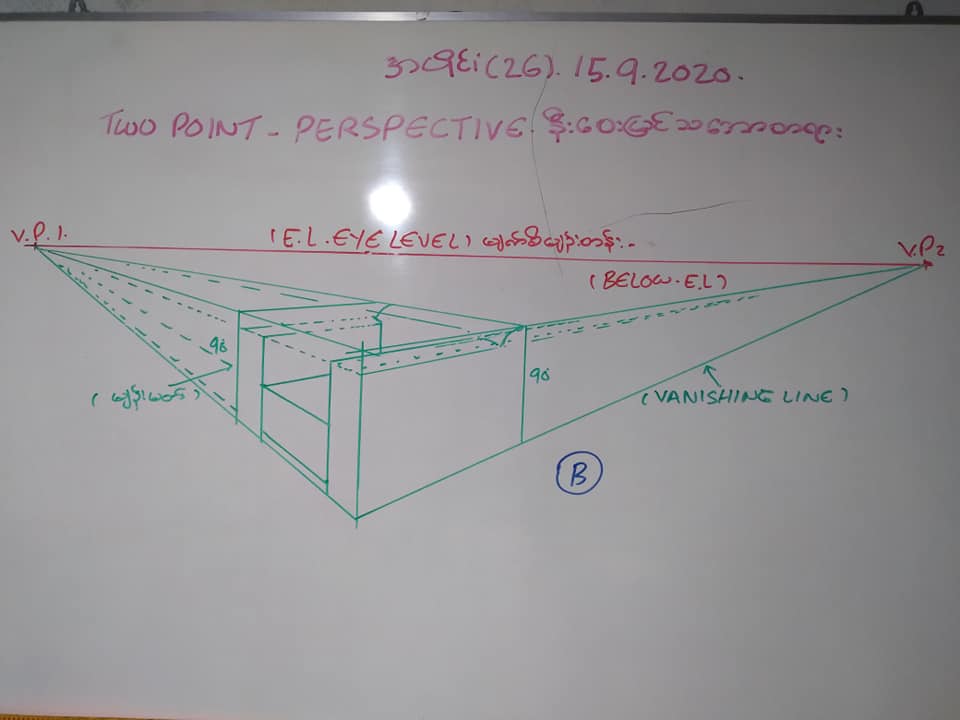 အပိုင်း(26). 15.9.2020.
TWO POINT - PERSPECTIVE. နီးဝေးမြင်သဘောတရား
V.P.1.
(E.L. EYE LEVEL) မျက်စိမျဉ်းတန်း..
V.P2
(BELOW.E.L)
90
90
(မျဉ်းမတ်)
(VANISHING LINE)
B